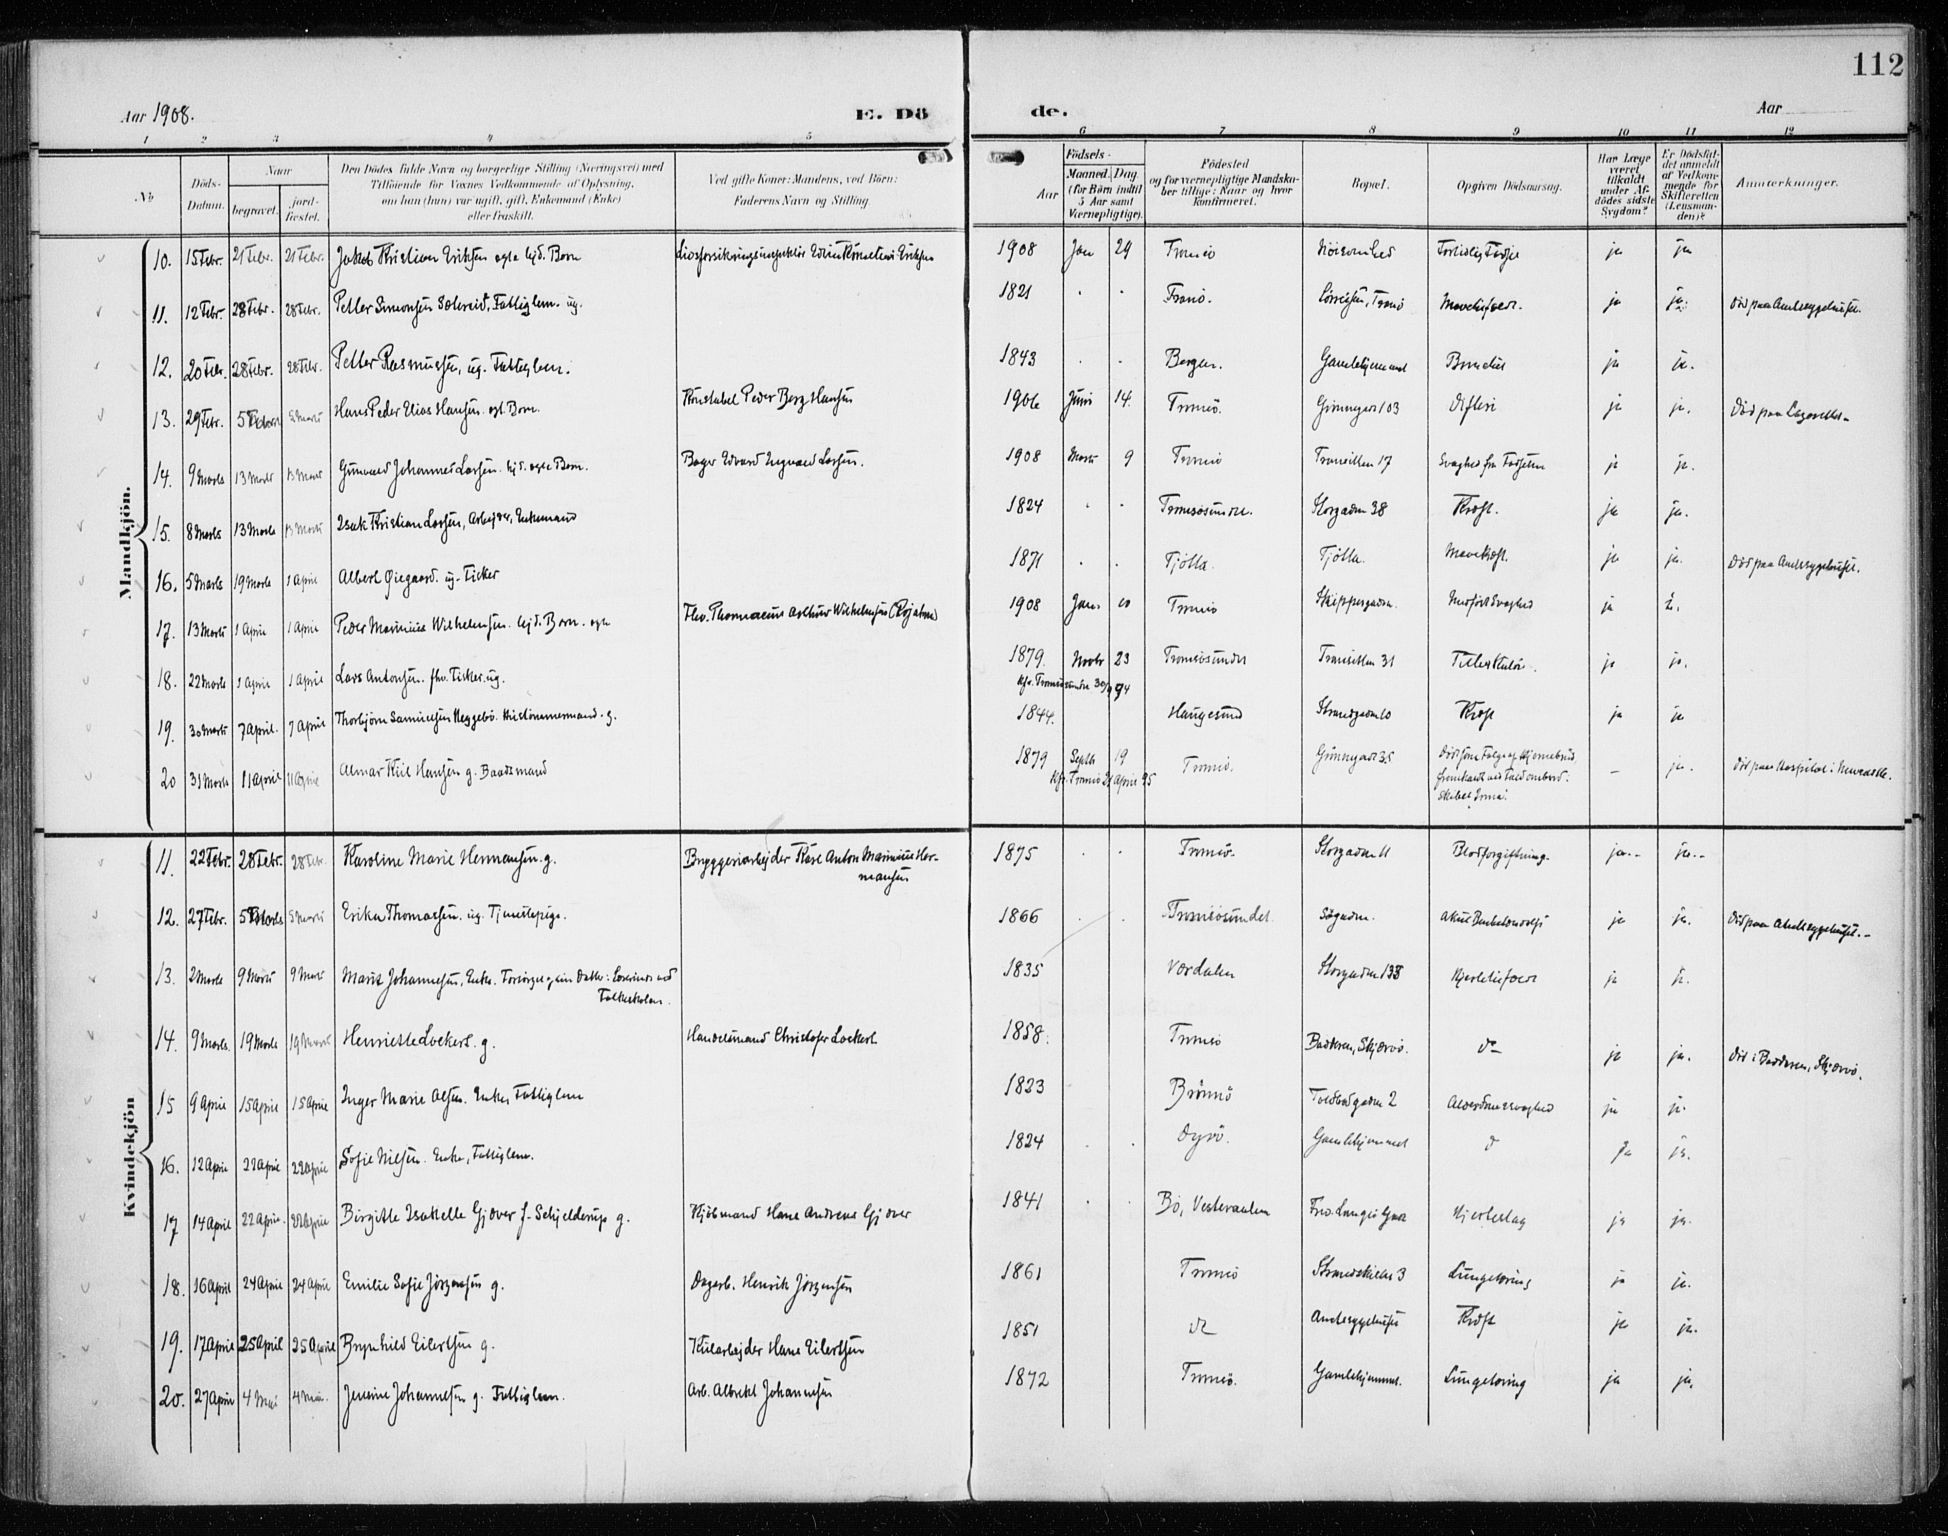 112
Aar 1908.
E. Dö de.
Aar
1 2 3 4 5 6 7 8 9 10 11 12
No
Döds-Datum.
Naar
begravet.
jord-fæstet.
Den Dödes fulde Navn og borgerlige Stilling (Næringsvei) med
Tilföiende for Voxnes Vedkommende af Oplysning,
om han (hun) var ugift, gift, Enkemand (Enke)
eller fraskilt.
Ved gifte Koner: Mandens, ved Börn:
Faderens Navn og Stilling.
Födsels-
Aar
Maaned. Dag.
(for Börn indtil
5 Aar samt
Værnepligtige).
Födested
og for værnepligtige Mandska-
ber tillige: Naar og hvor
konfirmeret.
Bopæl.
Opgiven Dödsaarsag.
Har Læge
været
tilkaldt
under Af-
dödes sidste
Sygdom?
Er Dödsfal-
det anmeldt
af Vedkom-
mende for
Skifteretten
(Lensman-
den)?
Anmærkninger.
Mandkjön.
10. 15 Febr. 21 Febr. 21 Febr. Jakob Kristian Eriksen egte hjd. Barn 1908 Jan 29 Tromsö ja ja
11. 12 Febr. 28 Febr. 28 Febr. Petter Simonsen Solveid, Fattiglem. ug. 1821 Tranö. ja ja. Död paa Amtssygehuset.
12. 20 Febr. 28 Febr. 28 Febr. Petter Rasmussen, ug. Fattiglem. 1843 Bergen. Gamlehjemmet ja ja.
13. 29 Febr. 5 Marts 5 Marts Hans Peder Elias Hansen. egt. Barn. Konstabel Peder Berg Hansen 1906 Juni 14. Tromsö. Grönnegad 103 Difteri ja ja. Död paa Lazarettet.
14. 9 Marts 13 Marts 13 Marts Gunvald Johannes Larsen. hjd. egte Barn. Bager Edvard Ingvald Larsen. 1908 Marts 9 Tromsö 17 Svaghed fra Fødselen ja ja.
15. 8 Marts 13 Marts 13 Marts Isak Kristian Larsen, Arbejder, Enkemand 1824 Tromsösundet. Storgaden 38 Kræft. ja ja.
16. 5 Marts 19 Marts 1 April Albert Øiegaard. ug. Fisker 1871 Tjötta. Tjötta. Mavekræft. ja ja. Död paa Amtssygehuset.
17. 13 Marts 1 April 1 April Peder Marinius Wilhelmsen. hjd. Barn. egte Arthur Wilhelmsen 1908 Jan. 10 Tromsö Skippergaden. Medfödt Svaghed ja
18. 22 Marts 1 April 1 April Lars Antonsen. fhv. Fisker. ug. 1879. Novbr 23 Tromsösundet 31 ja ja.
Kfr. Tromsösundet 94
19. 30 Marts 7 April. 7 April Thorbjörn Samuelsen Heggebö. g. 1844. Haugesund Strandgaden 10 Kræft ja ja
20 31 Marts 11 April 11 April Almar Kiil Hansen g. Baadsmand 1879 Septbr 19 Tromsö. Grönnegad 35 Död som Fölge af Hjernebrud,
Kfr. Tromsö 21 April 95 fremkaldt ved Fald ombord. – ja. Död paa Hospital i Newcastle.
Skibet Irma.
Kvindekjön
11. 22 Febr. 28 Febr. 28 Febr. Karoline Marie Hermansen. g. Bryggeriarbejder Kare Anton Marinius Her-
mansen 1875 Tromsö. Storgaden 11 Blodforgiftning. ja ja.
12. 27 Febr. 5 Marts 5 Marts Erika Thomassen. ug. Tjenestepige. 1866 Tromsösundet. Sögaden. ja ja. Död paa Amtssygehuset.
13. 2 Marts 9 Marts 9 Marts Marit Johannesen, Enke. Forsörget af sin Datter: Lærerinde ved
Folkeskolen. 1835 Værdalen Storgaden 133 Hjertelidelse ja ja.
14. 9 Marts 19 Marts 19 Marts Henriette Lockert. g. Handelsmand Christofer Lockert. 1858. Tromsö Badderen, Skjærvö. do ja ja. Död i Badderen, Skjærvö.
15 9 April 15 April 15 April Inger Marie Olsen. Enke, Fattiglem 1823 Brönnö Toldbodgaden 2 Alderdomssvaghed ja ja.
16. 12 April 22 April 22 April Sofie Nilsen. Enke, Fattiglem. 1824 Dyrö. Gamlehjemmet do ja ja.
17 14 April 22 April. 22 April Birgitte Isabelle Gjæver f. Schjelderup g. Kjöbmand Hans Andreas Gjæver 1841 Bö, Vesteraalen Hjerteslag ja ja.
18. 16 April 24 April 24 April Emilie Sofie Jörgensen g. Dagarb. Henrik Jörgensen 1861 Tromsö Strandskillet 3 Lungetæring ja ja.
19. 17 April 25 April 25 April Brynhild Eilertsen g. Kularbejder Hans Eilertsen 1851 do Amtssygehuset Kræft ja ja.
20. 27 April 4 Mai 4 Mai. Jensine Johannesen g. Fattiglem. Arb. Albrekt Johannesen 1872 Tromsö. Gamlehjemmet. Lungetæring ja ja.